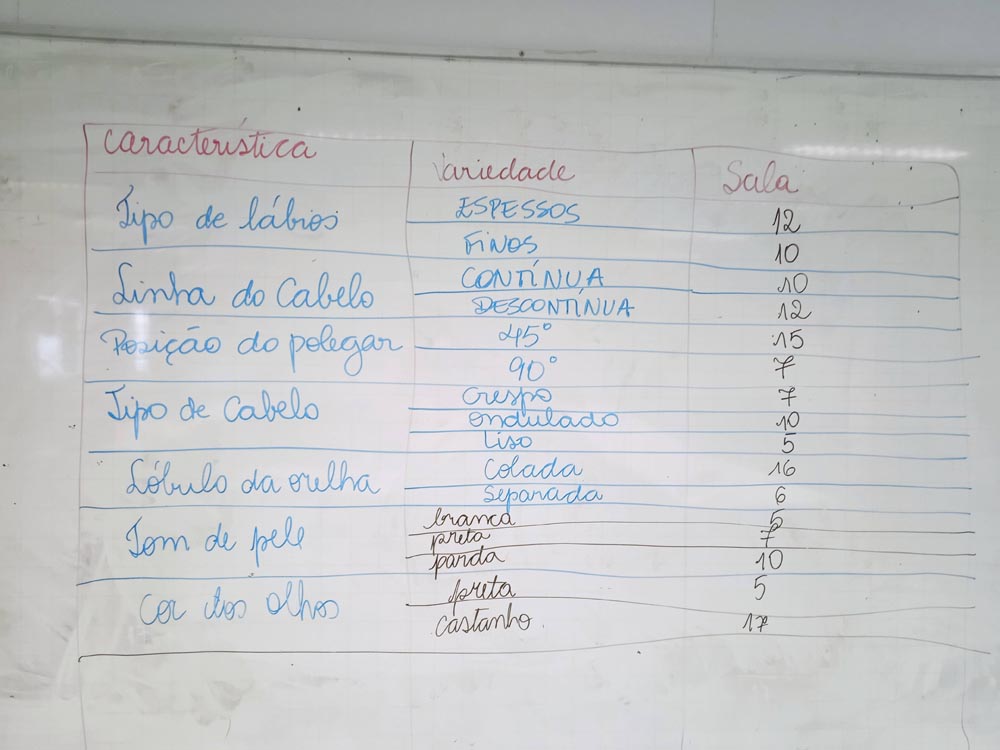 Característica Variedade Sala
Tipo de lábios ESPESSOS 12
FINOS 10
Linha do Cabelo CONTÍNUA 10
DESCONTÍNUA 12
Posição do polegar 45° 15
90° 7
Tipo de Cabelo Crespo 7
ondulado 10
Liso 5
Lóbulo da orelha Colada 16
Separada 6
Tom de pele branca 5
preta 7
parda 10
Cor dos olhos preta 5
Castanho 17